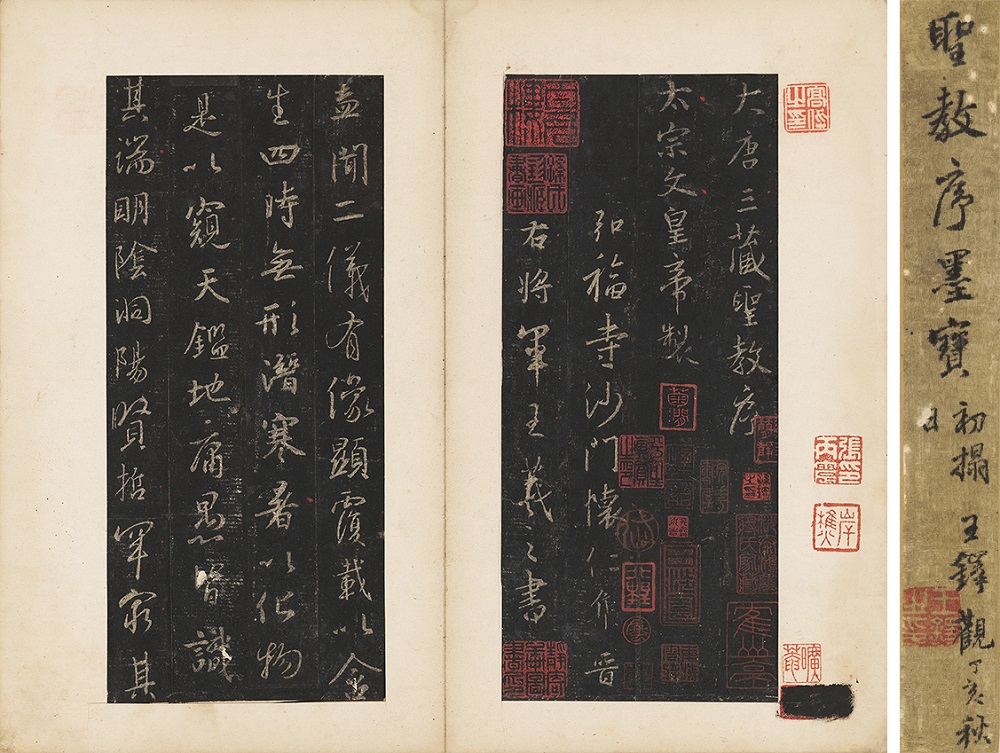 聖教序墨寶
初搨 王鐸觀 丁亥秋
日
大唐三藏聖教序
太宗文皇帝製
弘福寺沙門懷仁集晉
右將軍王羲之書
蓋聞二儀有像顯覆載以含
生四時無形潛寒暑以化物
是以窺天鑑地庸愚皆識
其端明陰洞陽賢哲罕窮其